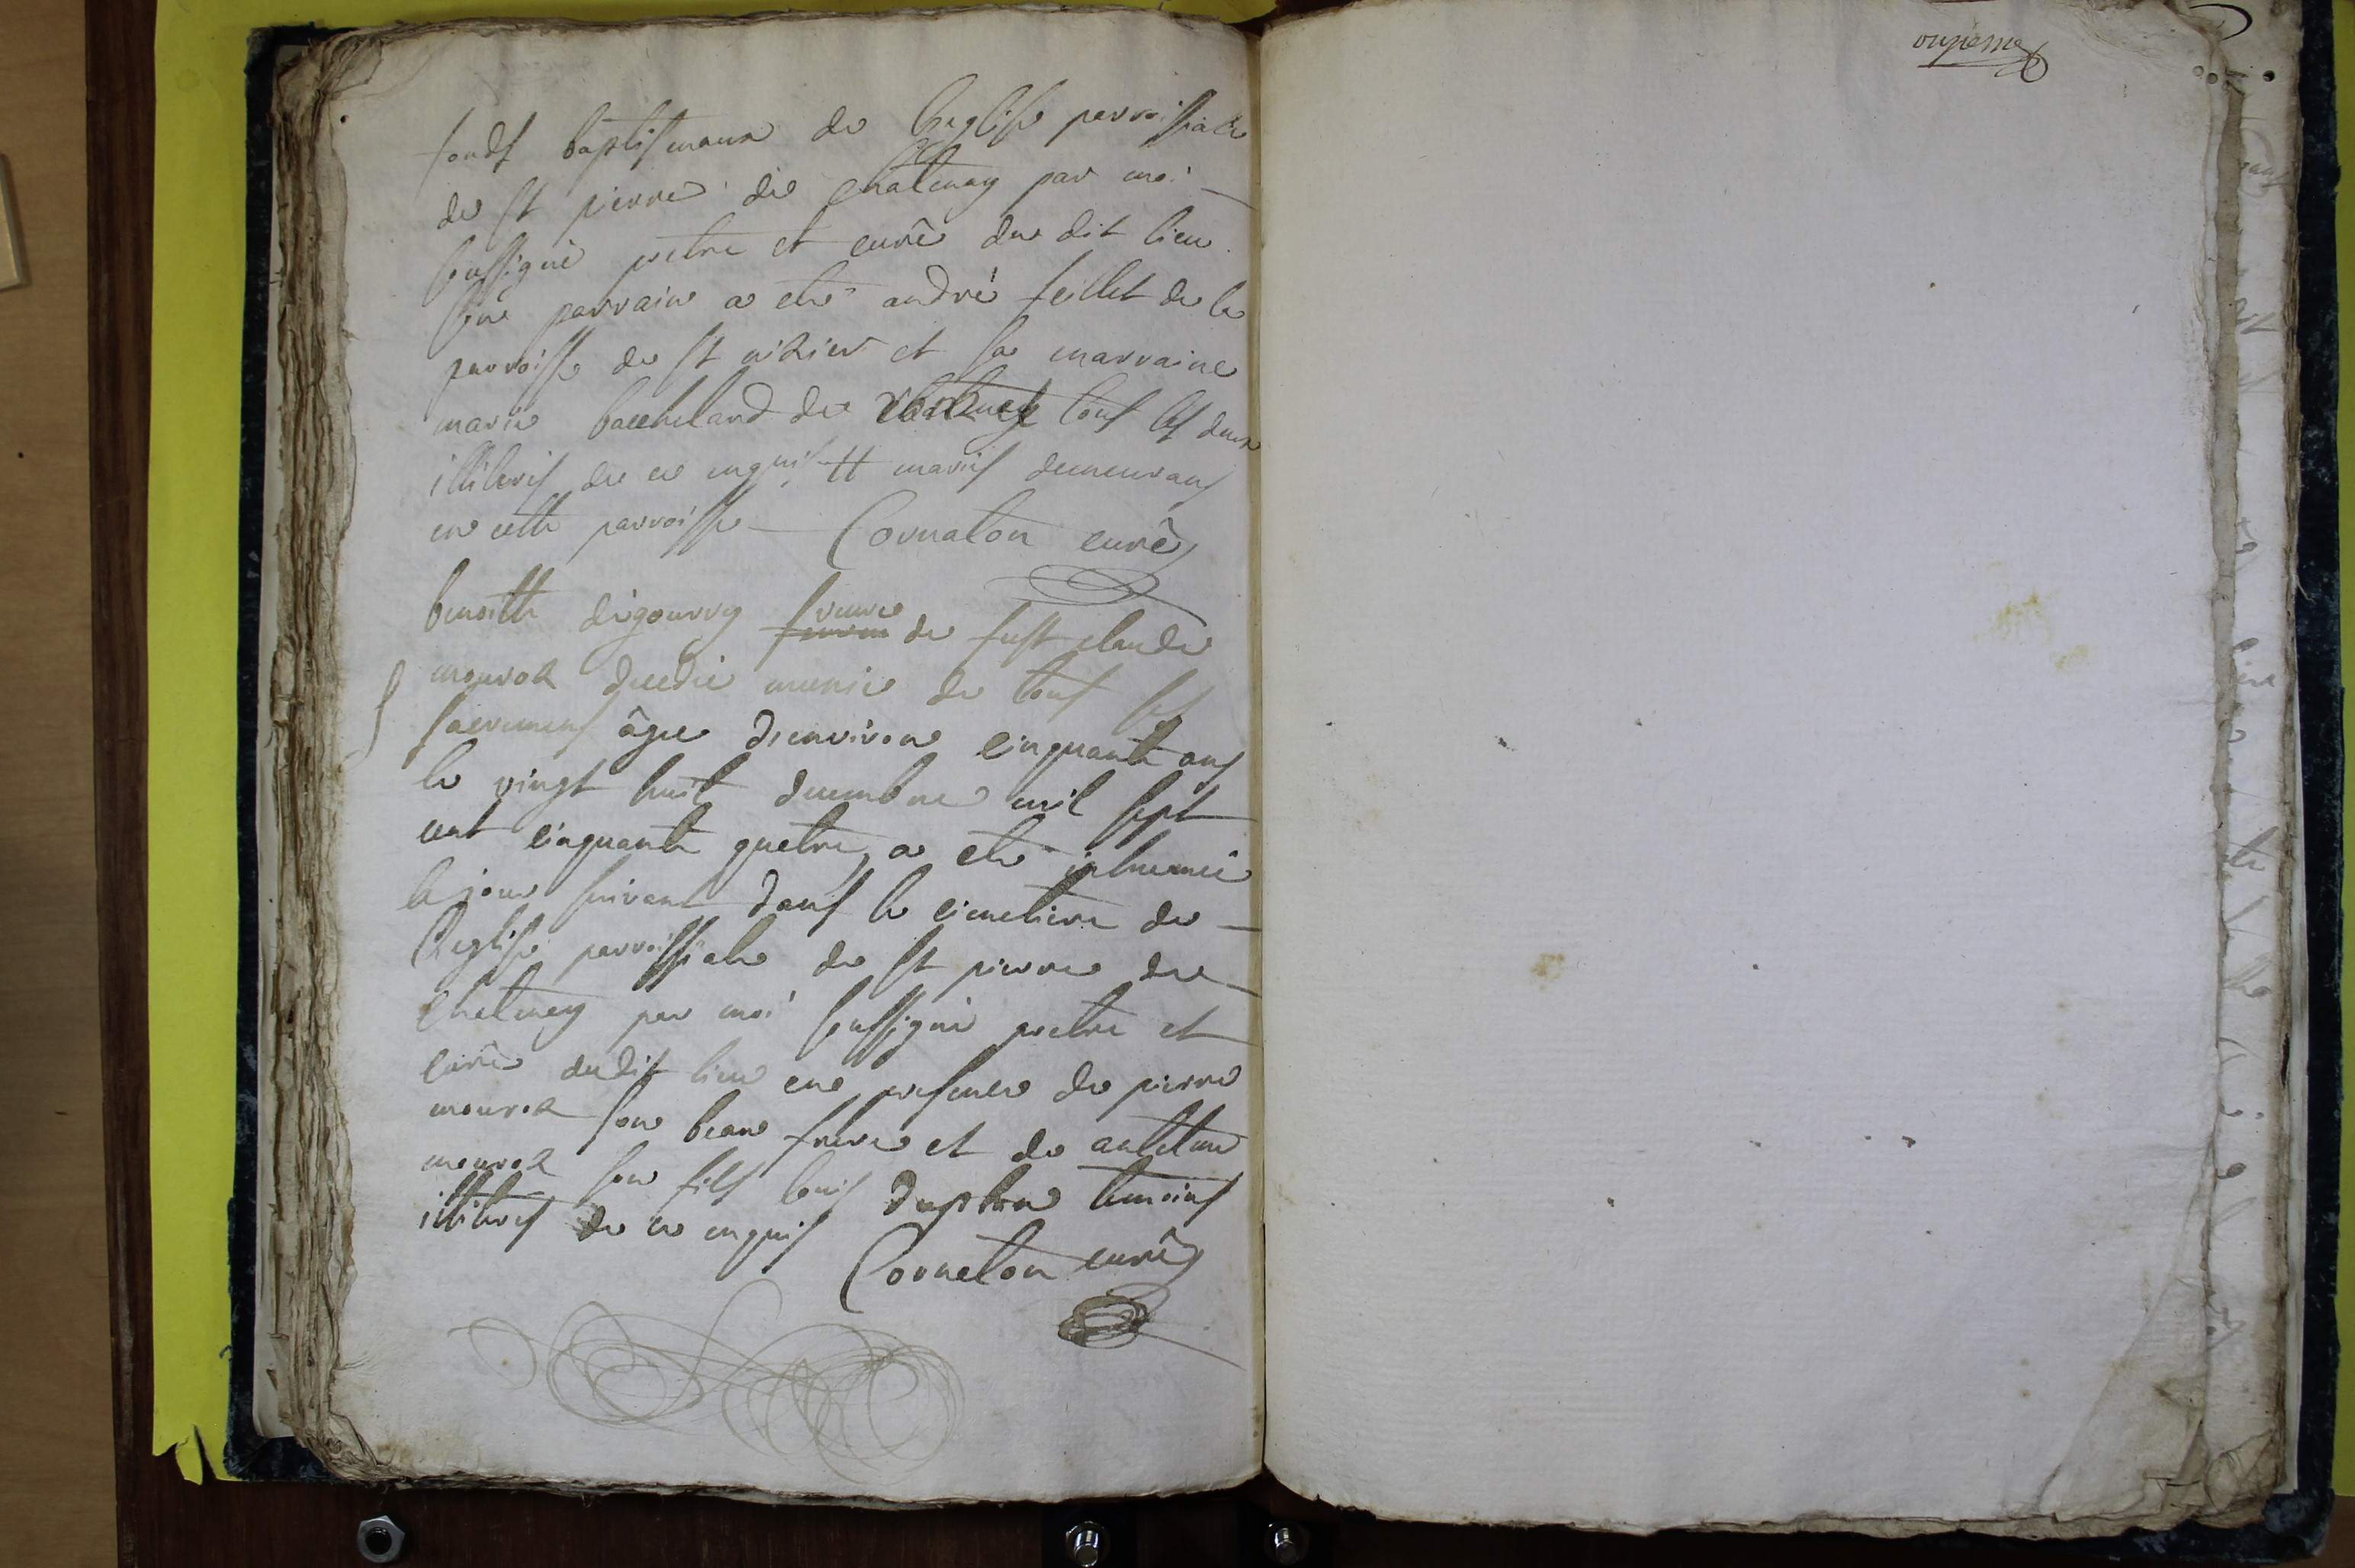 fonds baptismaux de l'eglise parroissiale
de st pierre de chatenay par moi
soussigné pretre et curê du dit lieu
son parrain a eté andré feillet de la
parroisse de st nizier et sa marraine
marie baccheland de tous les deux
illiterés de ce enquis tt mariés demeurans
en cette parroisse Cornaton curê
benoitte digonnry veuve
femme de fust claude
mouroz decedée munie de tous les
sacremens âgee denviron cinquante ans
le vingt huit decembre mil sept
cent cinquante quatre, a eté inhumée
le jour suivant dans le cimetiere de
l'eglise parroissiale de st pierre de
chatenay par moi soussigné pretre et
curê dudit lieu en presence de pierre
mouroz son beau frere et de
mouroz son fils louis temoins
illiterés de ce enquis
Cornaton curê
onzieme